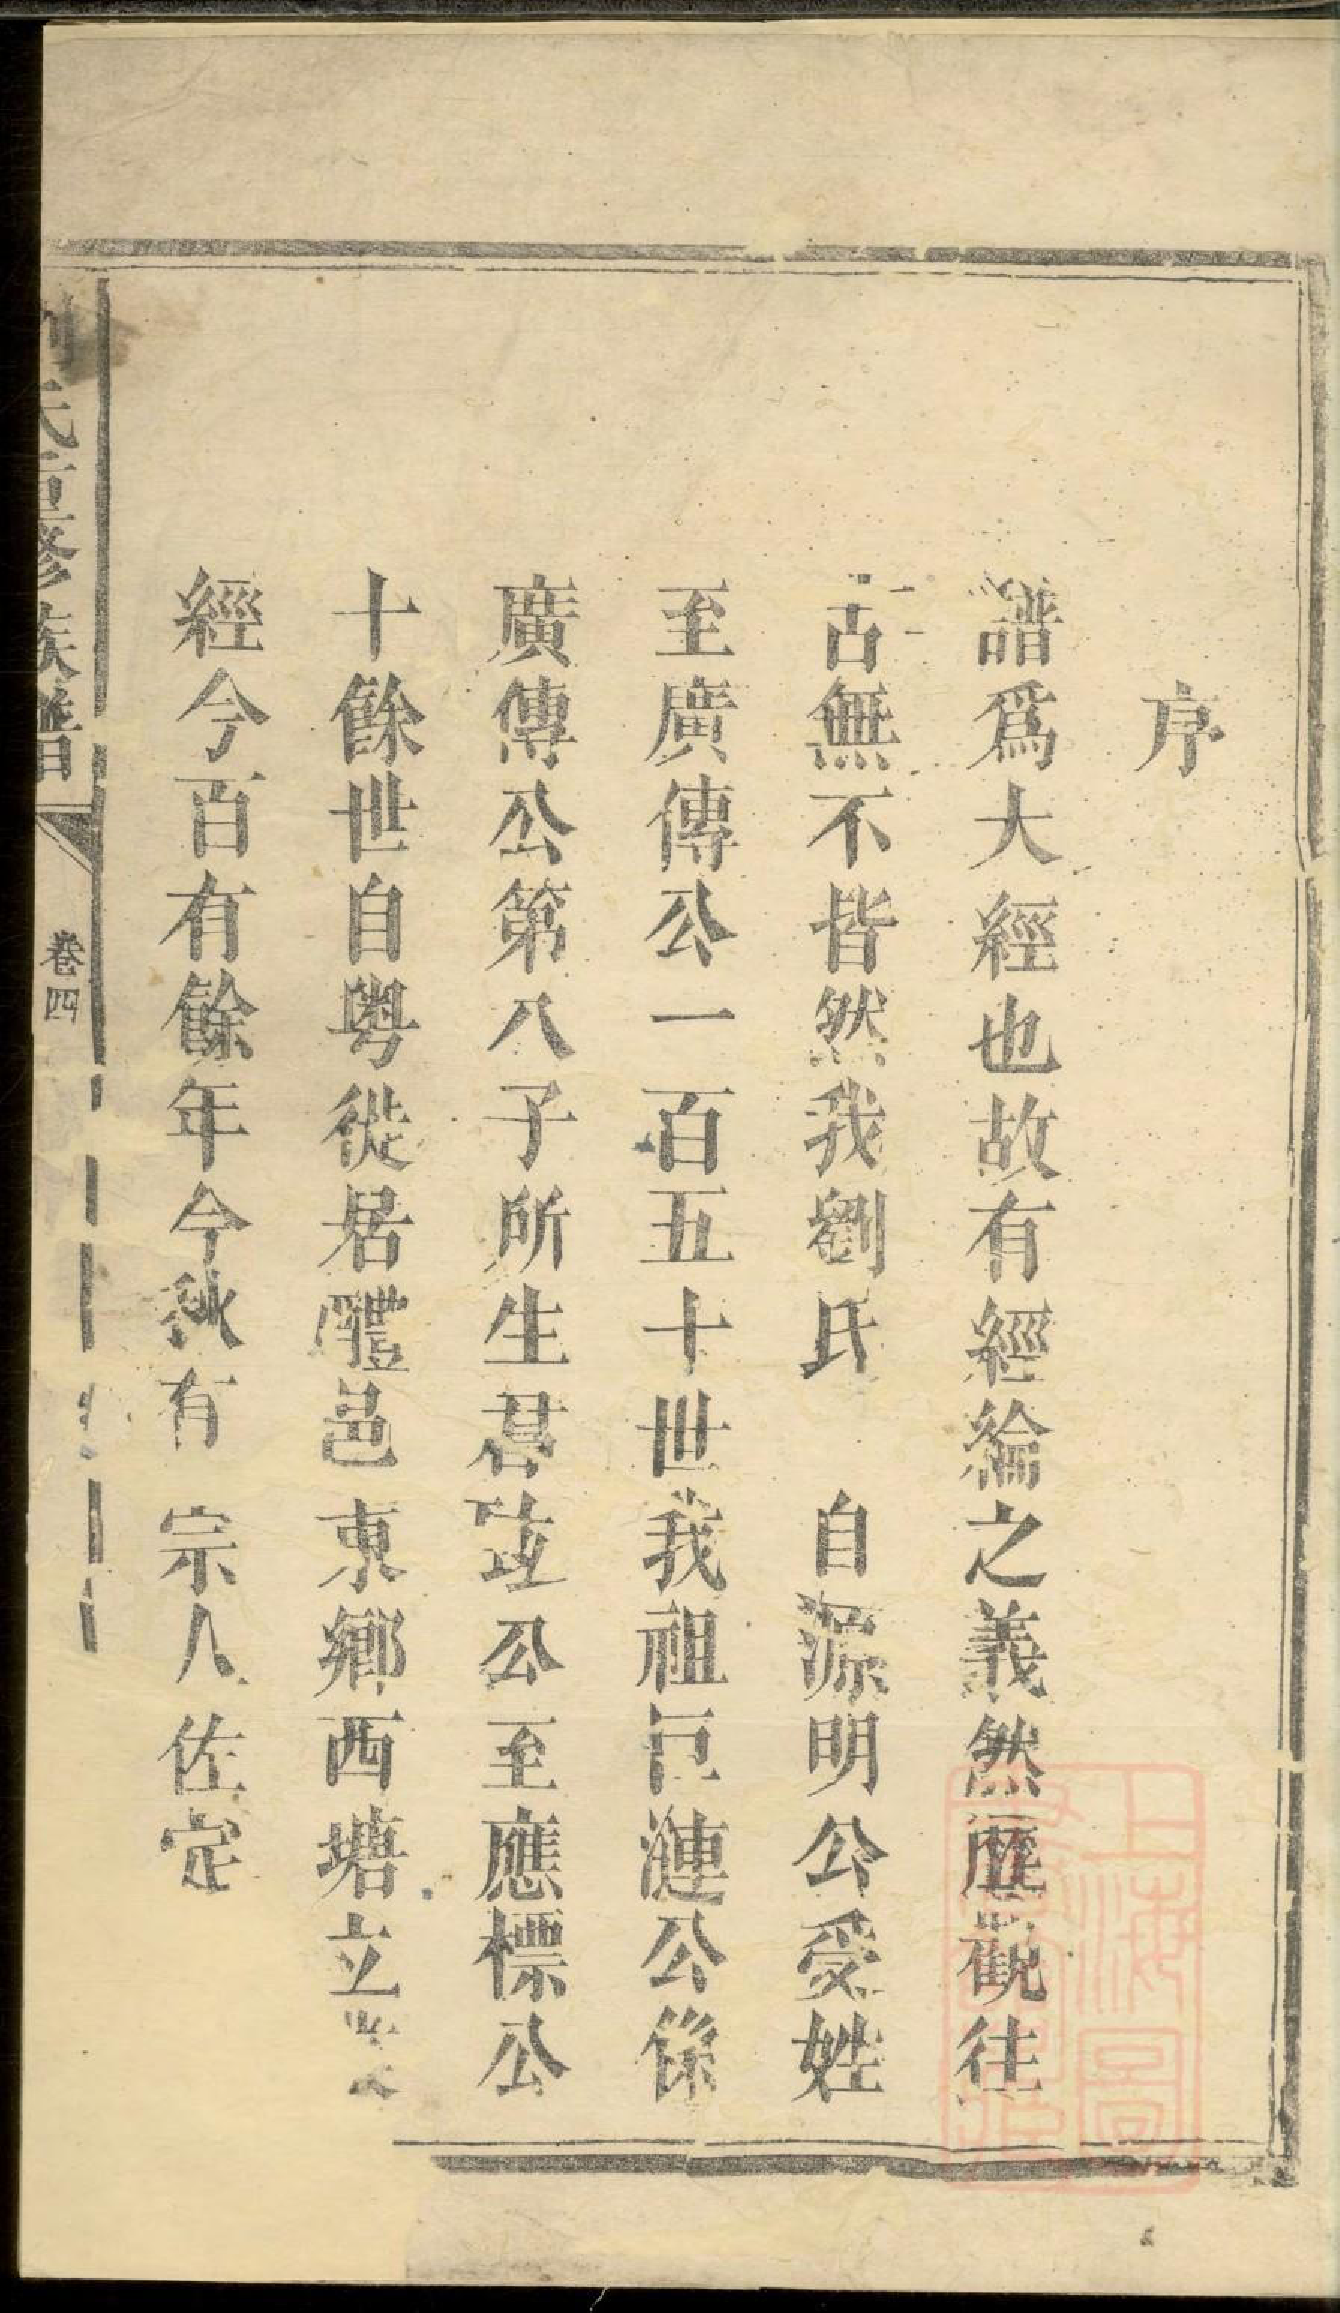 序
譜爲大經也故有經綸之義然歷觀往
古無不皆然我劉氏　自源明公受姓
至廣傳公一百五十世我祖巨漣公係
廣傳公第八子所生君竝公至應標公
十餘世自粵徙居醴邑東鄉西塘立業
經今百有餘年今秋有　宗人佐定
劉氏亘修族譜
卷四
上海圖